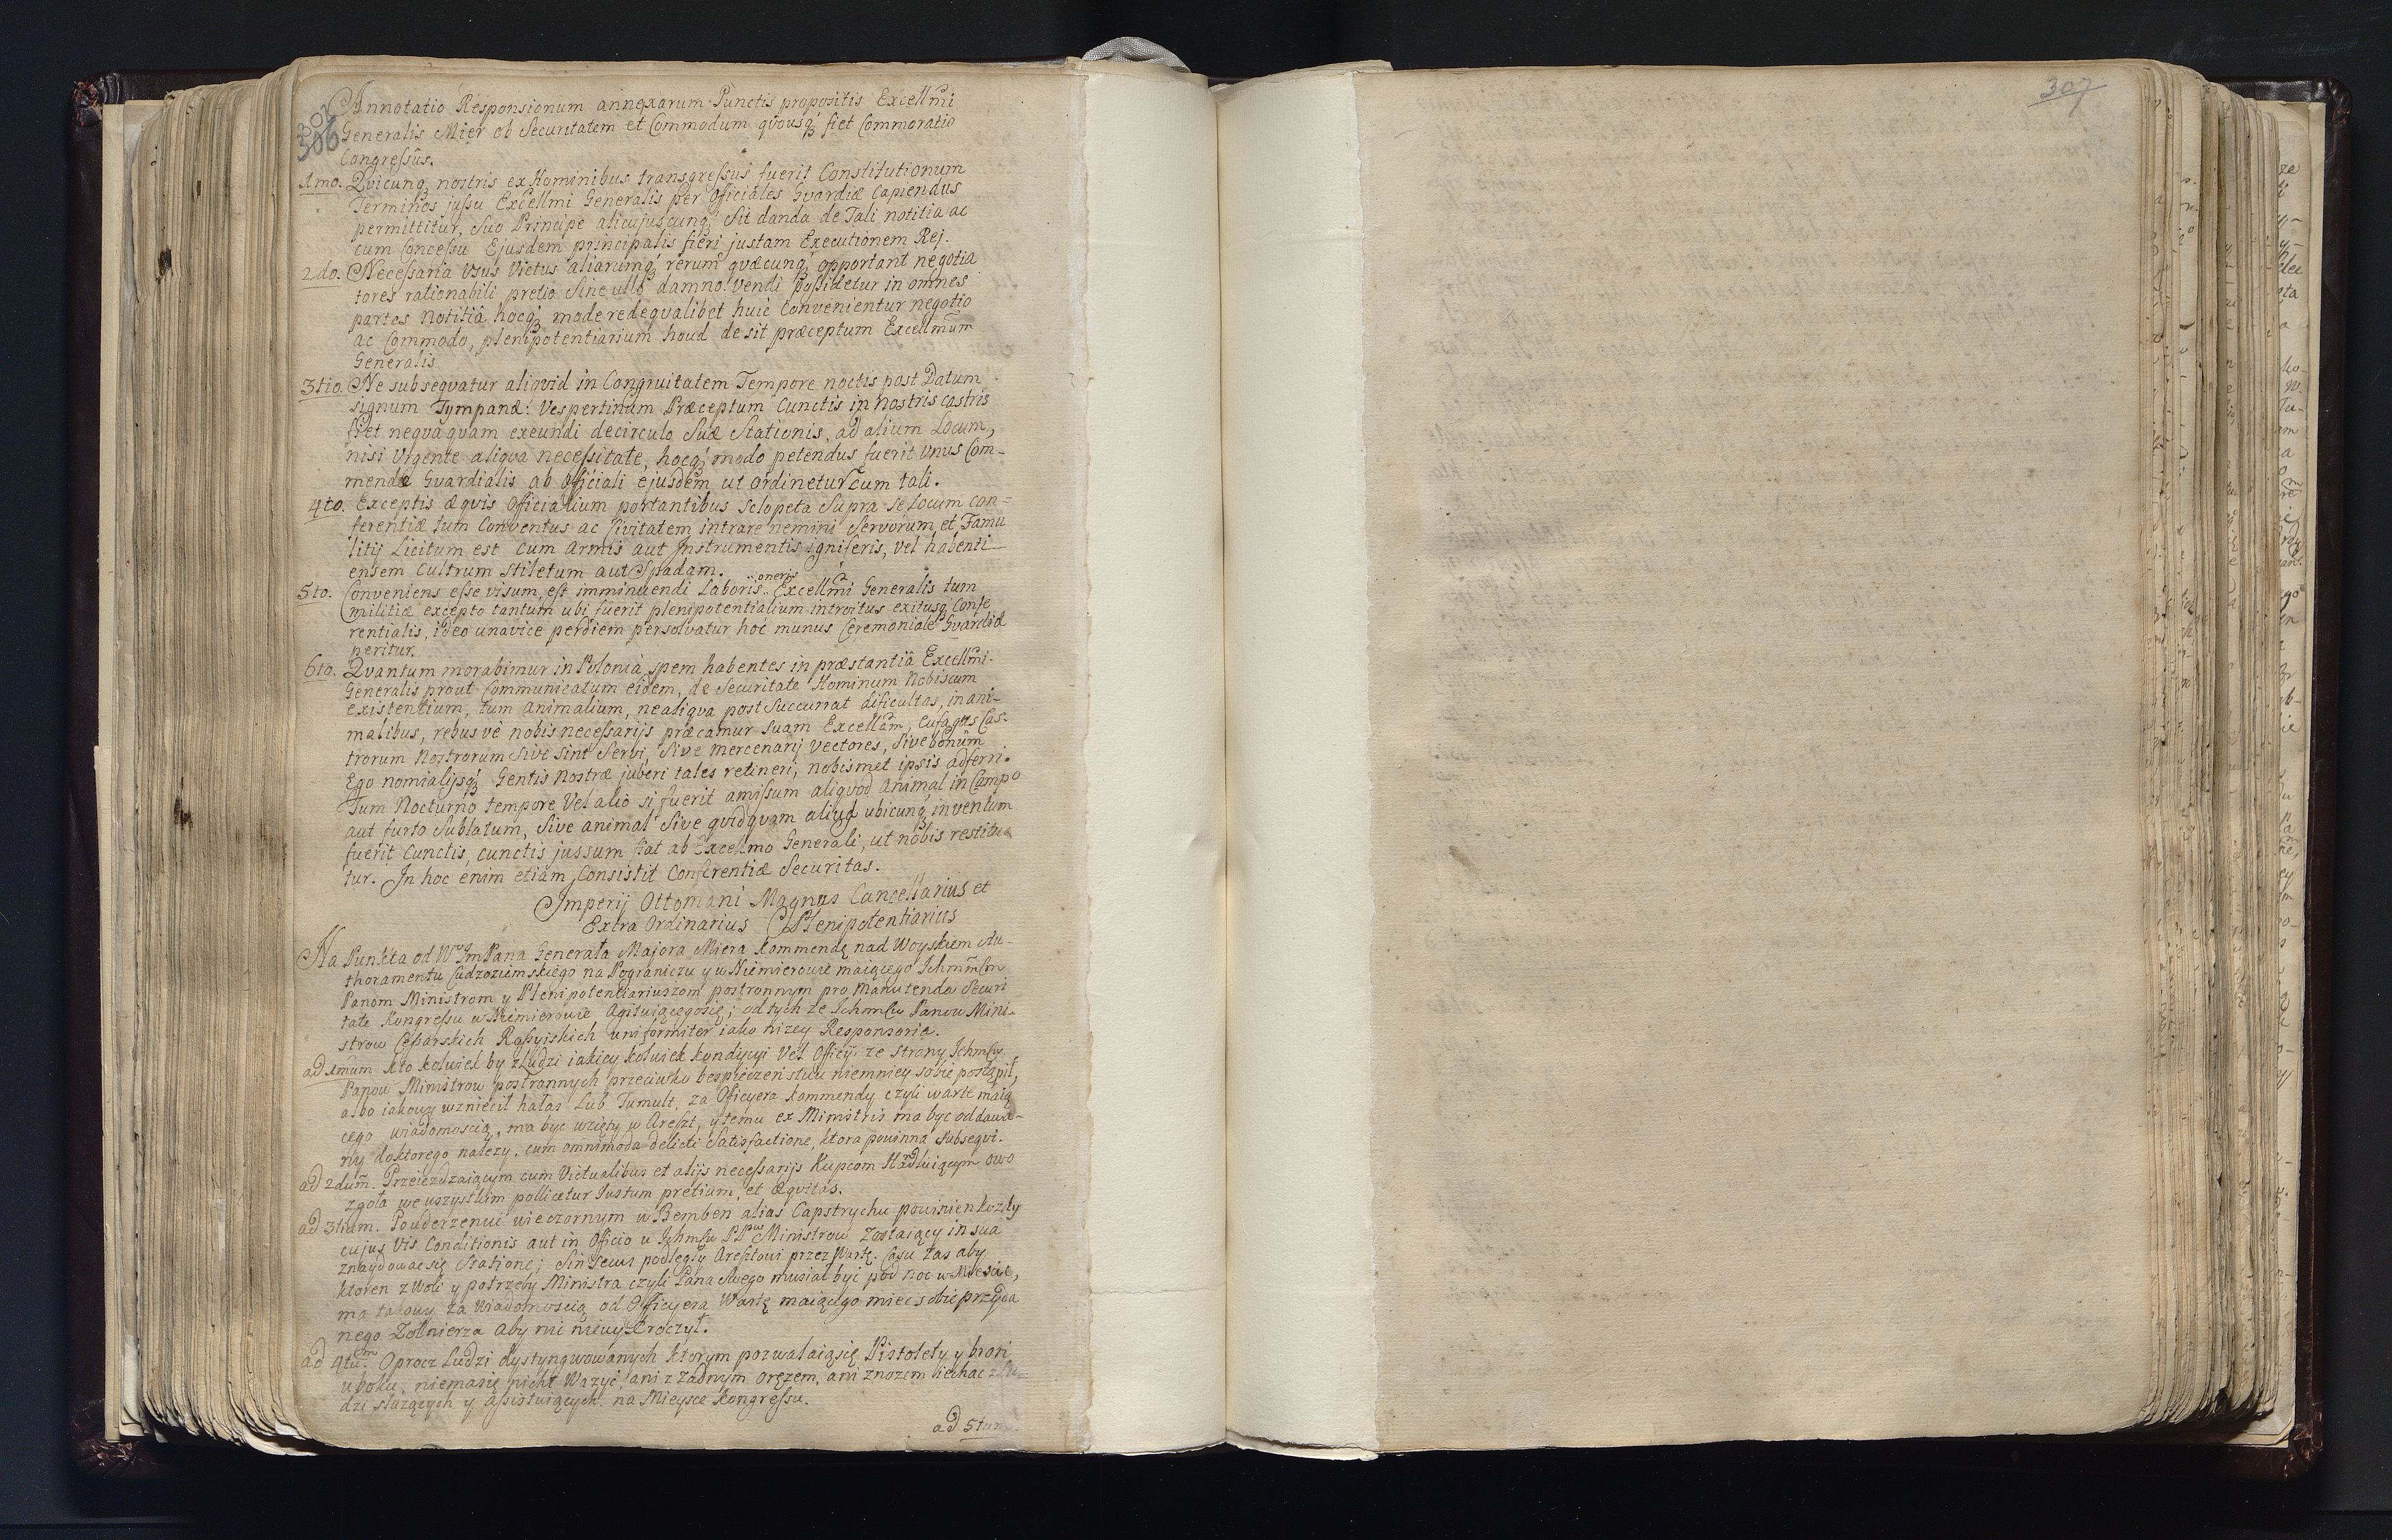 306
Annotatio Responsionum annexarum Punctis propositis Excellmi
Generalis Mier ob Securitatem et Commodum qvousq; fiet Commoratio
Congressûs.
1mo. Qvicunq; nostris ex Hominibus transgressus fuerit Constitutionum
Terminos jussu Excellmi Generalis per Officiales Gvardiæ Capiendus
permittitur, Suo Principe alicujuscunq; Sit danda de Tali notitia ac
cum Concessu Ejusdem principalis fieri justam Executionem Rej.
2do. Necessaria Usus Victus aliarumq; rerum qvæcunq; opportant negotia
tores rationabili pretio Sine ullo damno Vendi possidetur in omnes
partes notitiâ hocq; modo redeqvalibet huic Convenientur negotio
ac Commodo, plenipotentiarium houd desit præceptum Excellmûm
Generalis
3tio. Ne subseqvatur aliqvid in Congruitatem Tempore noctis post Datum
signum Tympanæ: Vespertinum Præceptum Cunctis in nostris castris
fiet neqvaqvam exeundi decirculo Suæ Stationis, ad alium Locum,
nisi Urgente aliqva necessitate, hocq; modo petendus fuerit Unus Com-
mendæ Gvardialis ab Officiali ejusdem ut ordinetur cum tali.
4to. Exceptis æqvis Officialium portantibus Sclopeta Supra se Locum con=
ferentiæ tum Conventus ac Civitatem intrare nemini Servorum et Famu
litij Licitum est cum Armis aut Instrumentis igniferis, vel habenti
ensem cultrum stiletum aut Spadam.
5to. Conveniens esse visum est imminuendi Laboris oneris Excellmi Generalis tum
militiæ excepto tantum ubi fuerit plenipotentialium introitus exitusq; Confe
rentialis, ideo unavice perdiem persolvatur hoc munus Ceremoniale Gvardiæ
peritur.
6to. Qvantum morabimur in Polonia spem habentes in præstantiâ Excellmi
Generalis prout Communicatum eidem, de Securitate Hominum Nobiscum
existentium, tum animalium, nealiqva post Succurrat dificultas, in ani-
malibus, rebusvè nobis necessarijs præcamur suam Excellam, cujaqvis Cas-
trorum Nostrorum Sive sint Servi, Sive mercenarij Vectores, Sive
Ego nomialijsq; Gentis Nostræ juberi tales retineri, nobismet ipsis adferri.
Tum Nocturno tempore Vel alio si fuerit amissum aliqvod animal in Campo
aut furto Sublatum, Sive animal Sive qvidqvam aliud ubicunq; inventum
fuerit Cunctis, cunctis jussum fiat ab Excelmo Generali, ut nobis restitua
tur. In hoc enim etiam Consistit Conferentiæ Securitas.
Imperij Ottomani Magnus Cancellarius et
Extra Ordinarius Plenipotentiarius
Na Punkta od W Im Pana Generała Majora Miera Kommendę nad Woyskiem Au-
thoramentu Cudzoziemskiego na Pograniczu y w Niemierowie maiącego Ichmm
Panom Ministrom y Plenipotencyariuszom postronnym pro manutenda Securi
tate Kongressu w Niemierowie Agituiącegosię; od tych ze Ichm Panow Mini-
strow Cesarskich Rossyiskich uniformiter iako nizey Responsoria.
ad 1mum Kto kolwiek by z Ludzi iakiey kolwiek kondycyi Vel Officij ze strony Ichm
Panow Ministrow postronnych przeciwko bespieczenstwu niemniey sobie postąpił,
albo iakowy wzniecił hałas Lub Tumult, za Oficyera kommendy czyli wartę maią
cego wiadomoscią, ma byc wzięty w Areszt, y temu ex Ministris ma byc oddawa-
ny doktorego nalezy, cum omnimoda delicti Satisfactione, ktora powinna subseqvi.
ad 2dum. Przeiezdzaiącym cum Victualibus et alijs necessarijs Kupcom Handluiącym owo
zgoła we wszystkim pollicetur Iustum pretium, et æqvitas.
ad 3tium. Po uderzeniu wieczornym w Bemben alias Capstrychu powinien kozdy
cujus Vis Conditionis aut in Officio u Ichm PP Ministrow Zostaiący in sua
znaydowac się Statione; Sin Secus podległy Aresztowi przez Wartę. Casu zas aby
ktoren z Woli y potrzeby Ministra czyli Pana Swego musiał byc pod noc w Miescie,
ma takowy za Wiadomoscią od Officyera Wartę maiącego miec sobie przyda
nego Zołnierza aby nie niewykroczył.
ad 4tum. Oprocz Ludzi dystyngwowanych ktorym pozwalaiąsię Pistolety y bron
u boku, niemasię nicht Wazyć, ani z Zadnym orężem, ani z nozem iechac z Lu=
dzi służących y assistuiących na Mieysce Kongressu.
ad 5tum
307